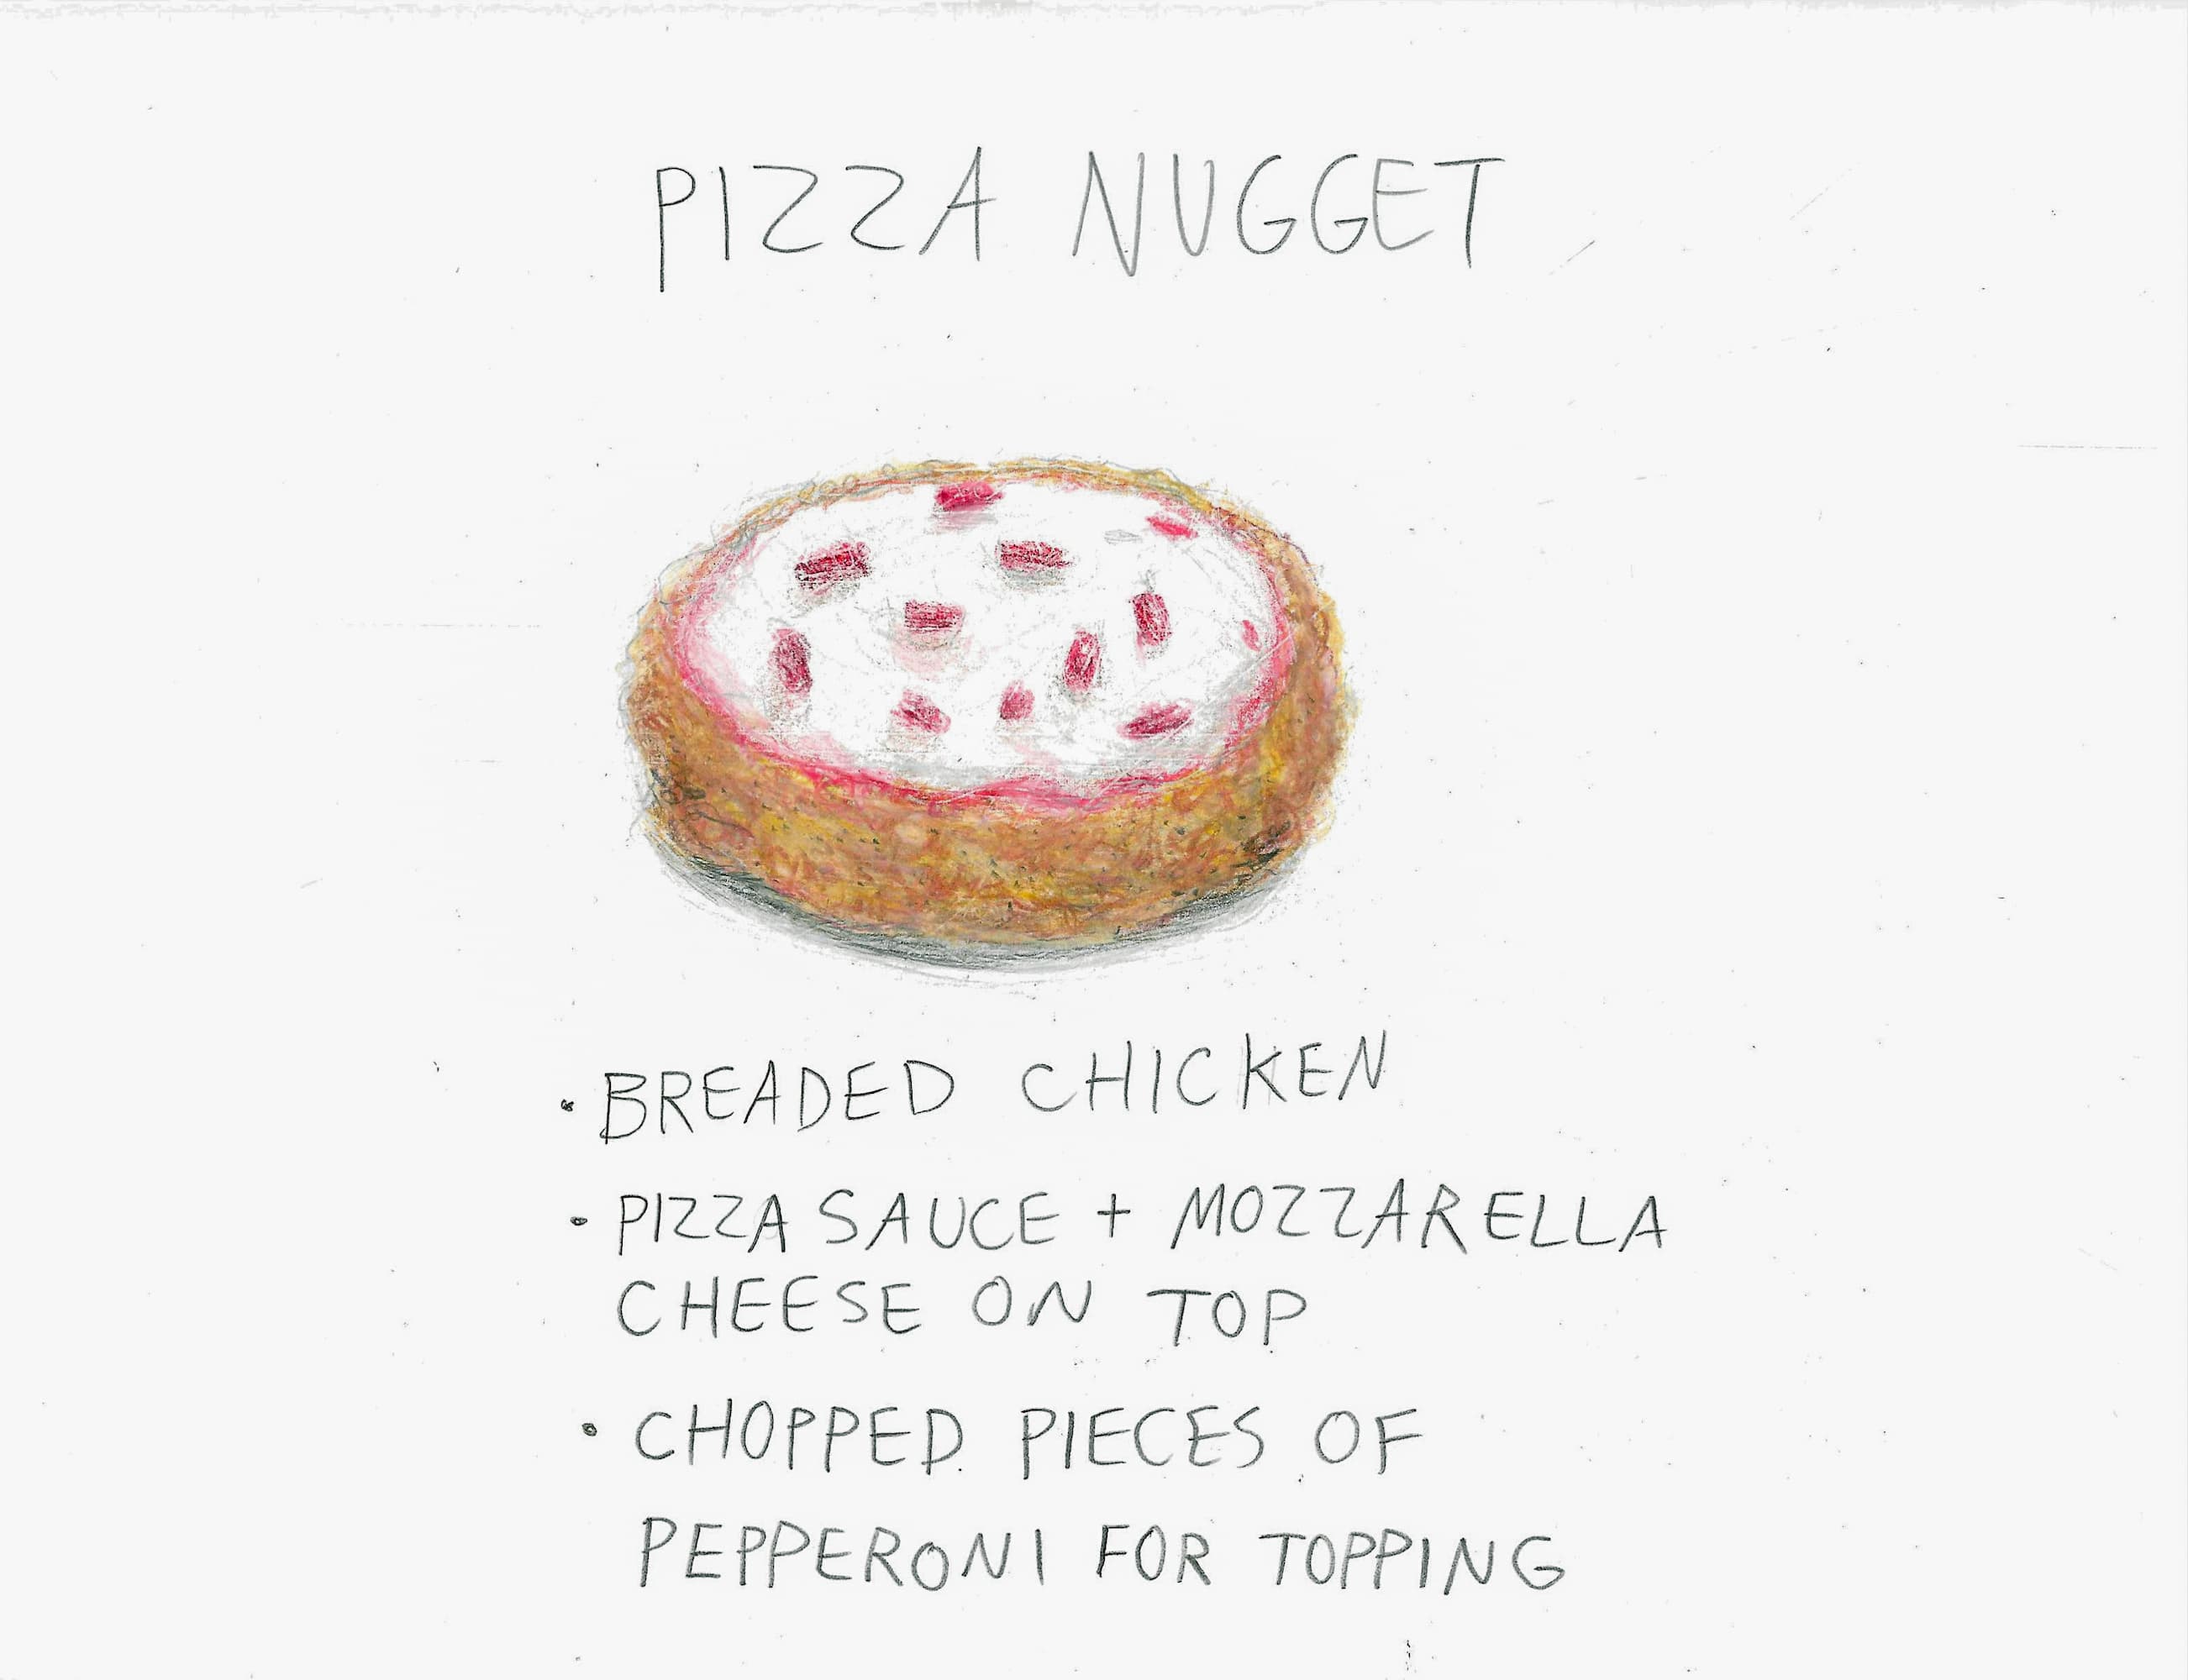 PIZZA NUGGET
• BREADED CHICKEN
• PIZZA SAUCE + MOZZARELLA
CHEESE ON TOP
• CHOPPED PIECES OF
PEPPERONI FOR TOPPING